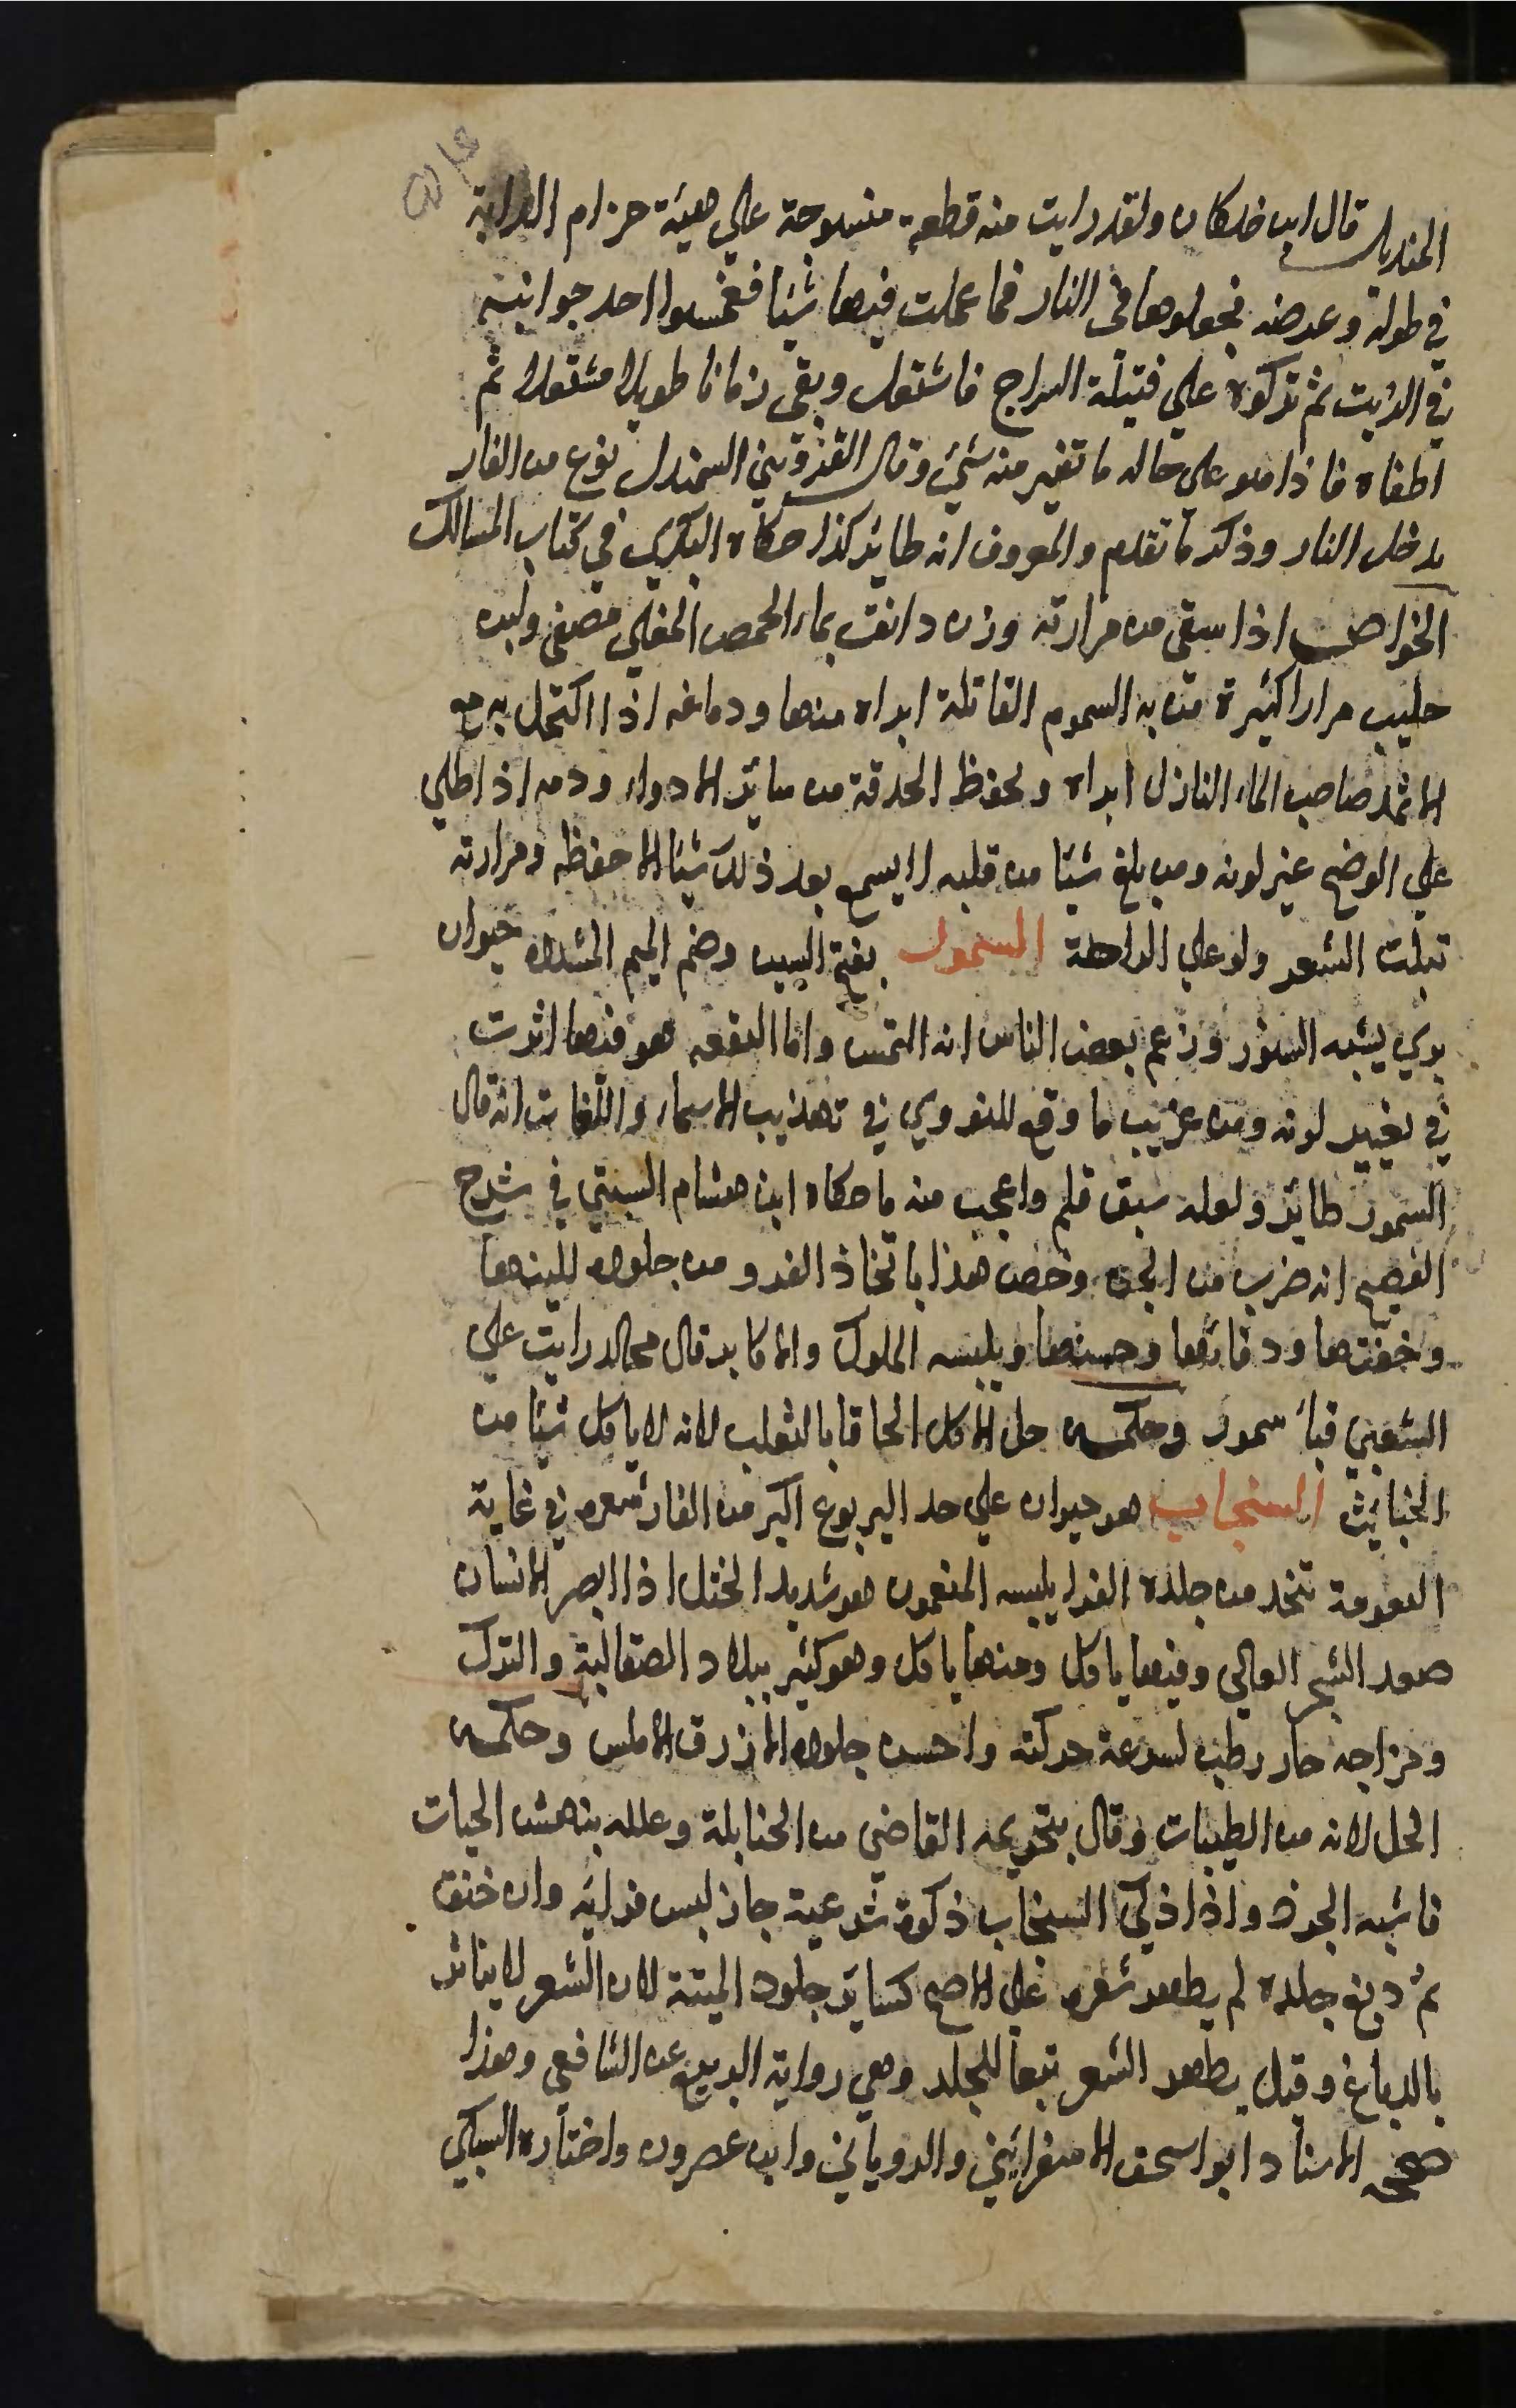 المنديل قال ابن خلكان ولقد رايت منه قطعة منسوجة علي هيئة حزام الدابة
في طوله وعرضه فجعلوها في النار فما عملت فيها شيئا فغمسوا احد جوانبه
في الزيت ثم تركوه علي فتيلة السراج فاشتعل وبقي زمانا طويلا مشتعلا ثم
اطفاه فاذا هو علي حاله ما تغير منه شيئ وقال القزويني السمندل نوع من الفار
يدخل النار وذكر ما تقدم والمعروف انه طائر كذا حكاه البكري في كتاب المسالك
الخواص اذا سقي من مرارته وزن دانق بماء الحمص المغلي مصفي ولبن
حليب مرارا كثيرة من به السموم القاتلة ابراه منها ودماغه اذا اكتحل به مع
الاثمد صاحب الماء النازل ابراه ويحفظ الحدقة من سائر الادواء ودمه اذا طلي
علي الوضح غير لونه ومن بلغ شيئا من قلبه لا يسمع بعد ذلك شيئا الا حفظه ومرارته
تنبت الشعر ولو علي الراحة السمور بفتح السين وضم الميم المشددة حيوان
بري يشبه السنور وزعم بعض الناس انه النمس واما البقعه هو فيها اثرت
في تغيير لونه ومن غريب ما وقع للنووي في تهذيب الاسماء واللغات انه قال
السمور طائر ولعله سبق قلم واعجب منه ما حكاه ابن هشام السبتي في شرح
الفصيح انه ضرب من الجن وخص هذا باتخاذ الفرو من جلوده للينها
وخفتها ودفائها وحسنها ويلبسه الملوك والاكابر قال مجالد رايت علي
الشعبي قباء سمور وحكمه حل الاكل الحاقا بالثعلب لانه لا ياكل شيئا من
الخبائث السنجاب هو حيوان علي حد اليربوع اكبر من الفار شعره في غاية
النعومة تتخذ من جلده الفرا يلبسه المنعمون هو شديد الختل اذا ابصر الانسان
صعد الشجر العالي وفيها ياكل ومنها ياكل وهو كثير ببلاد الصقالبة والترك
ومزاجه حار رطب لسرعة حركته واحسن جلوده الازرق الاملس وحكمه
الحل لانه من الطيبات وقال بتحريمه القاضي من الحنابلة وعلله بنهش الحيات
فاشبه الجرذ واذا ذكي السنجاب ذكوة شرعية جاز لبس فرائه وان خنق
ثم دبغ جلده لم يطهر شعره علي الاصح كسائر جلود الميتة لان الشعر لا يتاثر
بالدباغ وقيل يطهر الشعر تبعا للجلد وهي رواية الربيع عن الشافعي وهذا
صححه الاستاد ابو اسحق الاسفرائيني والروياني وابن عصرون واختاره السبكي